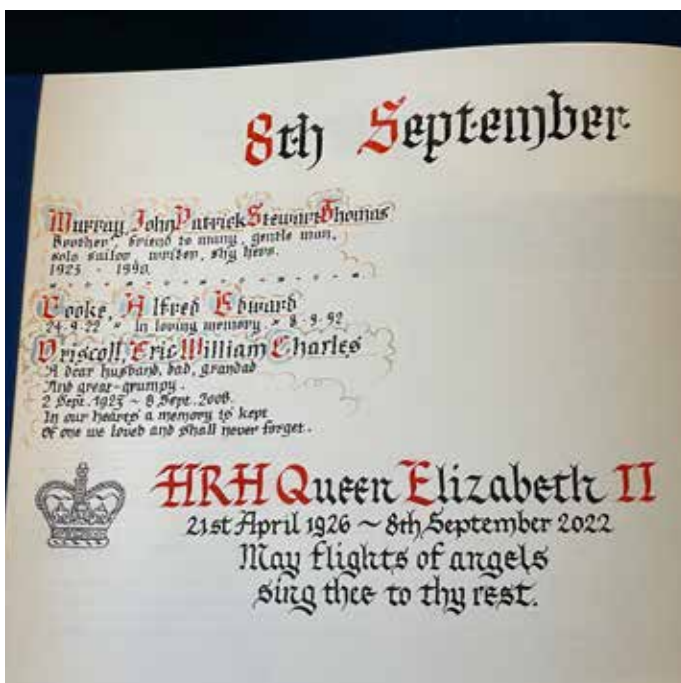 8th September
Murray, John Patrick Stewart Thomas
Brother, friend to many, gentle man,
solo sailor, writer, shy hero.
1923 - 1990.
Cooke, Alfred Edward
24·9·22 " In loving memory " 8·9·92
Driscoll, Eric William Charles
A dear husband, dad, grandad
And great-grumpy.
2 Sept. 1923 ~ 8 Sept. 2008.
In our hearts a memory is kept
Of one we loved and shall never forget.
HRH Queen Elizabeth II
21st April 1926 ~ 8th September 2022
May flights of angels
sing thee to thy rest.